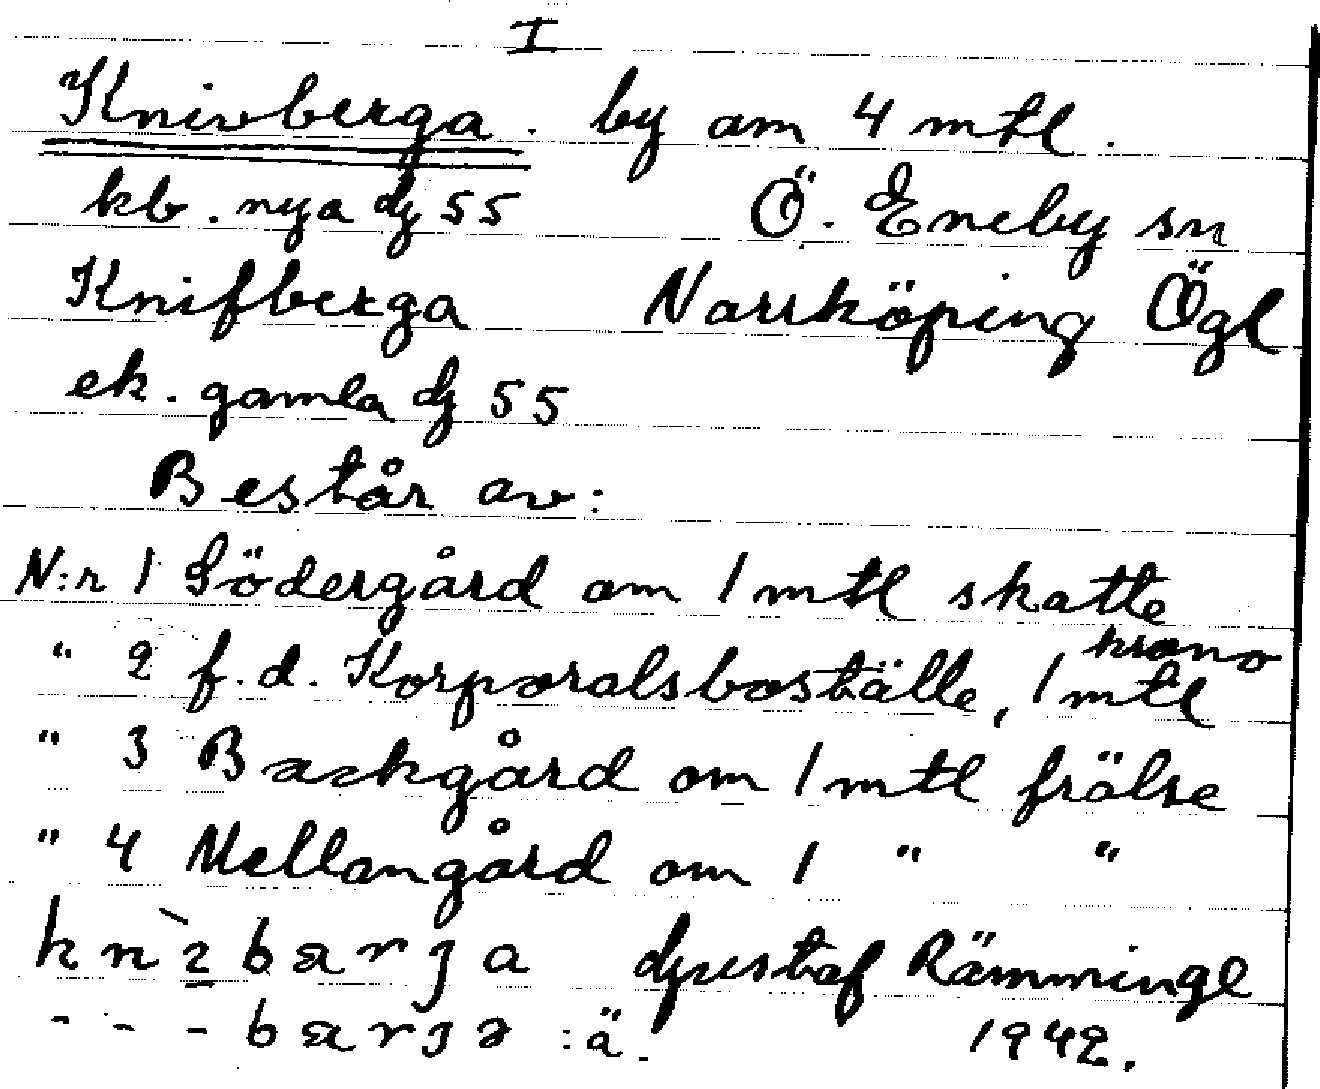 I
Knivberga. by om 4 mtl.
kb. nya dj 55 Ö. Eneby sn
Knifberga Norrköping Ögl
ek. gamla dj 55
Består av:
N:r 1 Södergård om 1 mtl skatte
" 2 f.d. Korporalsboställe, 1 mtl krono
" 3 Backgård om 1 mtl frälse
" 4 Mellangård om 1 " "
Gustaf Rämminge
- - - : ä. 1942.